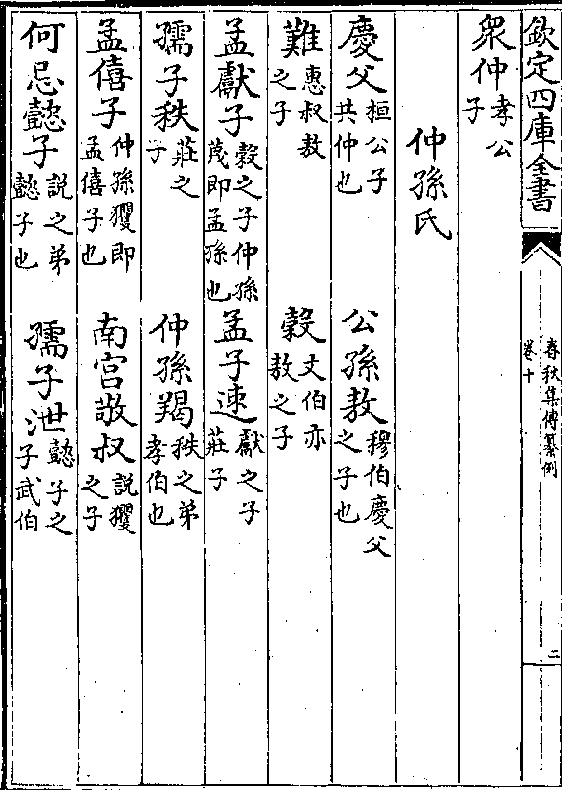 欽定四庫全書
春秋集傳纂例
卷十
二
衆仲孝公子
仲孫氏
慶父桓公子共仲也 公孫敖穆伯慶父之子也
難惠叔敖之子 穀文伯亦敖之子
孟獻子穀之子仲孫蔑即孟孫也 孟子速獻之子莊子
孺子秩莊之子 仲孫羯秩之弟孝伯也
孟僖子仲孫貜即孟僖子也 南宮敬叔說貜之子
何忌懿子說之弟懿子也 孺子洩懿子之子武伯